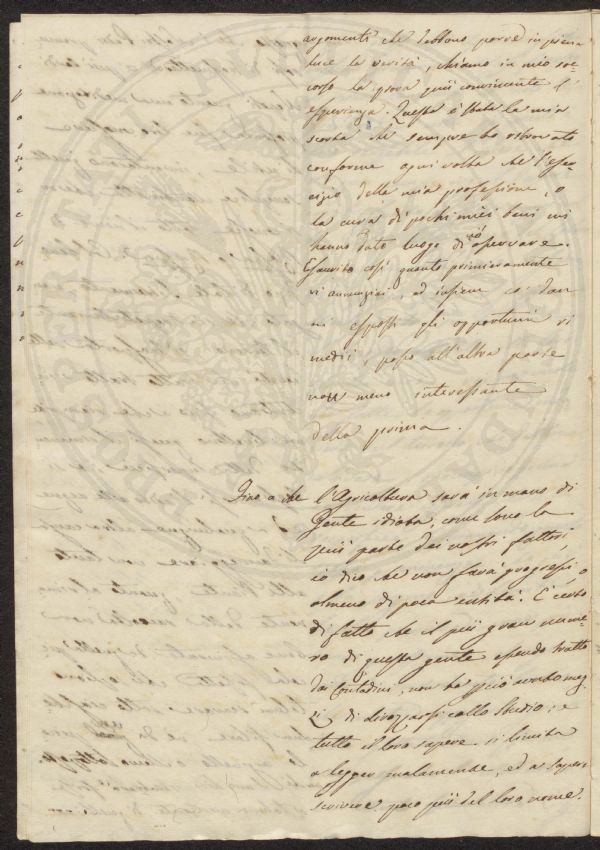 argomenti che debbono porre in piena
luce la verità, chiamo in mio soc-
corso la prova più convincente l'
esperienza. Questa è stata la mia
scorta che sempre ho ritrovato
conforme ogni volta che l'eser-
cizio della mia professione, o
la cura di pochi miei beni mi
hanno dato luogo di ciò osservare.
Esaurito così quanto primieramente
vi annunziai, ed insieme co' dan-
ni esposti gli opportuni ri
medj, passo all'altra parte
non meno interessante
della prima.
Fino a che l'Agricoltura sarà in mano di
Gente idiota, come sono la
più parte dei nostri fattori,
io dico che non farà progressi, o
almeno di poca entità. È certo
di fatto che il più gran nume-
ro di questa gente essendo tratto
dai Contadini, non ha avuto mez-
zi di dirozzarsi collo studio; e
tutto il loro sapere si limita
a legger malamente, ed a saper
scrivere poco più del loro nome.